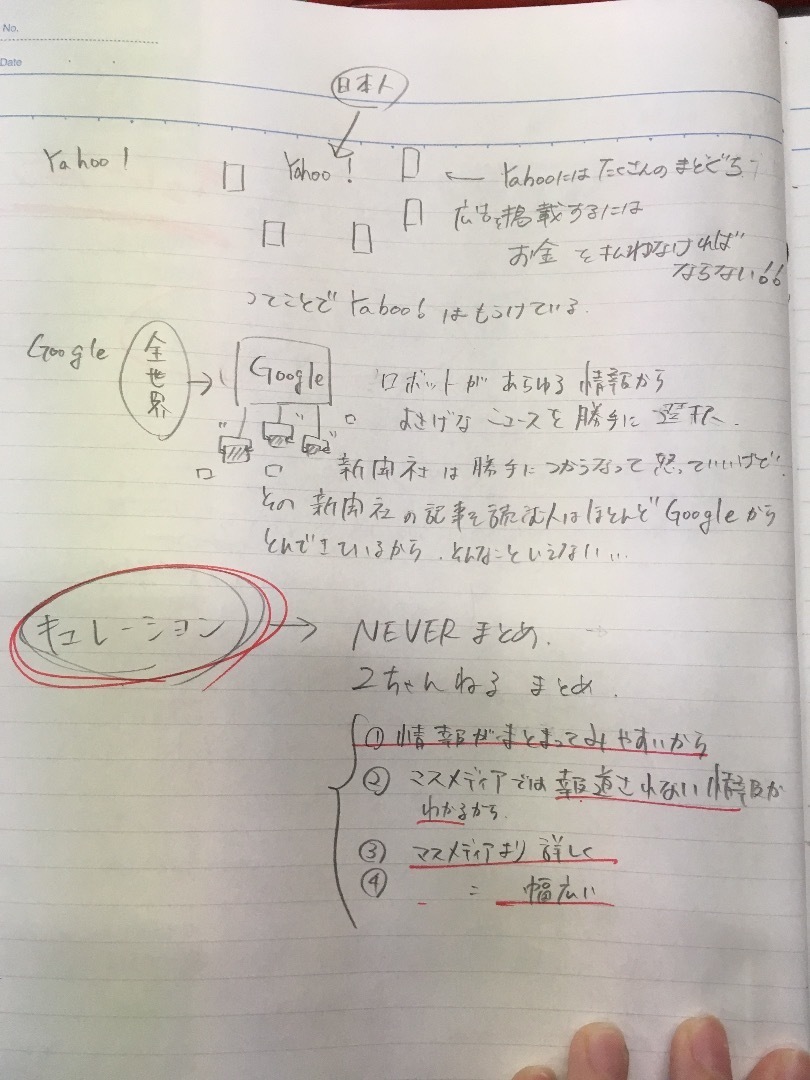 No.
Date
日本人
Yahoo!
Yahoo!
← Yahooにはたくさんのまどぐち
広告を掲載するには
お金をはらわなければ
ならない!!
ってことでYahoo!はもうけている.
Google
全世界
→
Google
ロボットがあらゆる情報から
よさげなニュースを勝手に選択.
新聞社は勝手につかうなって怒っていいけど
その新聞社の記事を読む人はほとんどGoogleから
とんできているから.そんなこといえない…
キュレーション → NEVERまとめ.
2ちゃんねる まとめ.
① 情報がまとまってみやすいから
② マスメディアでは報道されない情報が
わかるから.
③ マスメディアより詳しく
④ 〃 幅広い